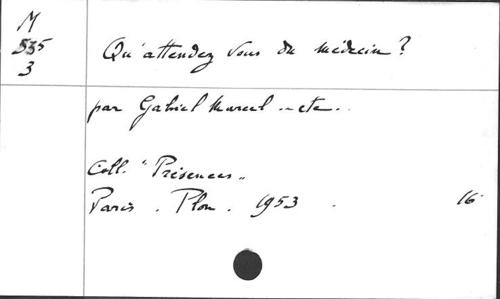 M
535
3
Qu'attendez vous du médecin?
par Gabriel Marcel .. etc..
Coll. "Présences"
Paris . Plon . 1953 . 16